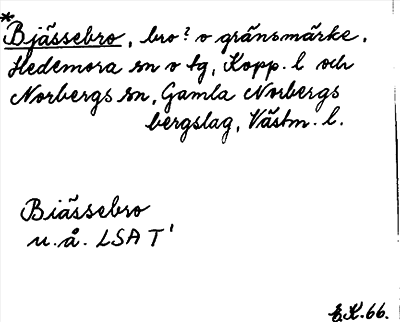 *Bjässebro, bro? o gränsmärke.
Hedemora sn o tg, Kopp. l och
Norbergs sn, Gamla Norbergs
bergslag, Västm. l.
Biässebro
u.å. LSA T'
E.K. 66.